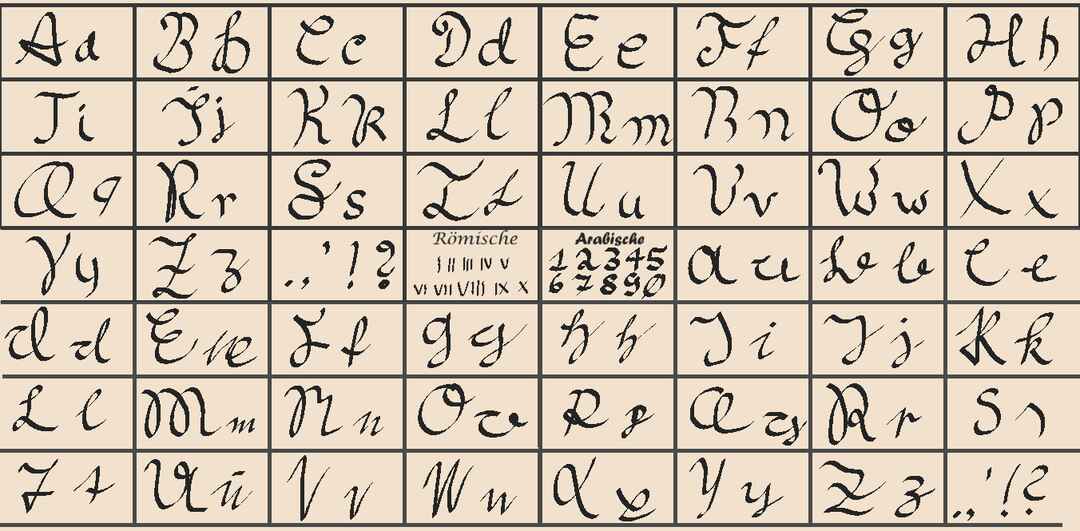 Aa Bb Cc Dd Ee Ff Gg Hh
Ii Jj Kk Ll Mm Nn Oo Pp
Qq Rr Ss Tt Uu Vv Ww Xx
Yy Zz .,'!? Römische Arabische Aa Bb Cc
I II III IV V 1 2 3 4 5
VI VII VIII IX X 6 7 8 9 0
Dd Ee Ff Gg Hh Ii Jj Kk
Ll Mm Nn Oo Pp Qq Rr Ss
Tt Uu Vv Ww Xx Yy Zz .,'!?